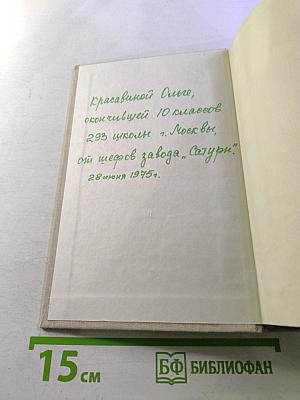 Красавиной Ольге,
окончившей 10 классов
293 школы г. Москвы,
от шефов завода „Сатурн".
28 июня 1975г.
15 см
БФ БИБЛИОФАН